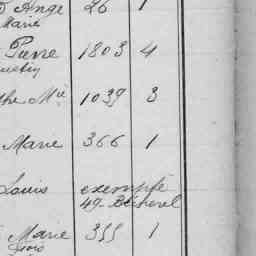 Ange 26 1
Marie
Pierre 1803 4
the Mie 1039 3
Marie 366 1
Louis exempté
49 Bécherel
Marie 355 1